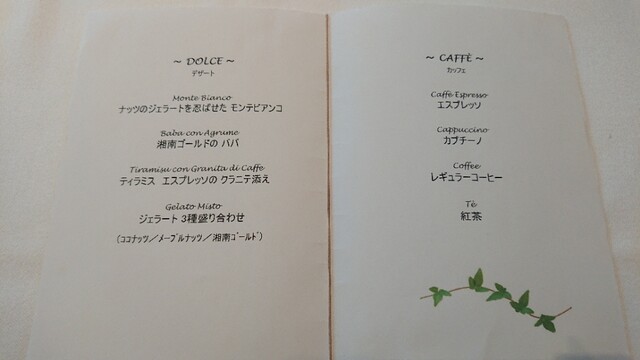 ~ DOLCE ~
デザート
Monte Bianco
ナッツのジェラートを忍ばせた モンテビアンコ
Baba con Agrume
湘南ゴールドの ババ
Tiramisu con Granita di Caffe
ティラミス エスプレッソの クラニテ添え
Gelato Misto
ジェラート 3種盛り合わせ
(ココナッツ/メープルナッツ/湘南ゴールド)
~ CAFFÈ ~
カッフェ
Caffè Espresso
エスプレッソ
Cappuccino
カプチーノ
Coffee
レギュラーコーヒー
Tè
紅茶